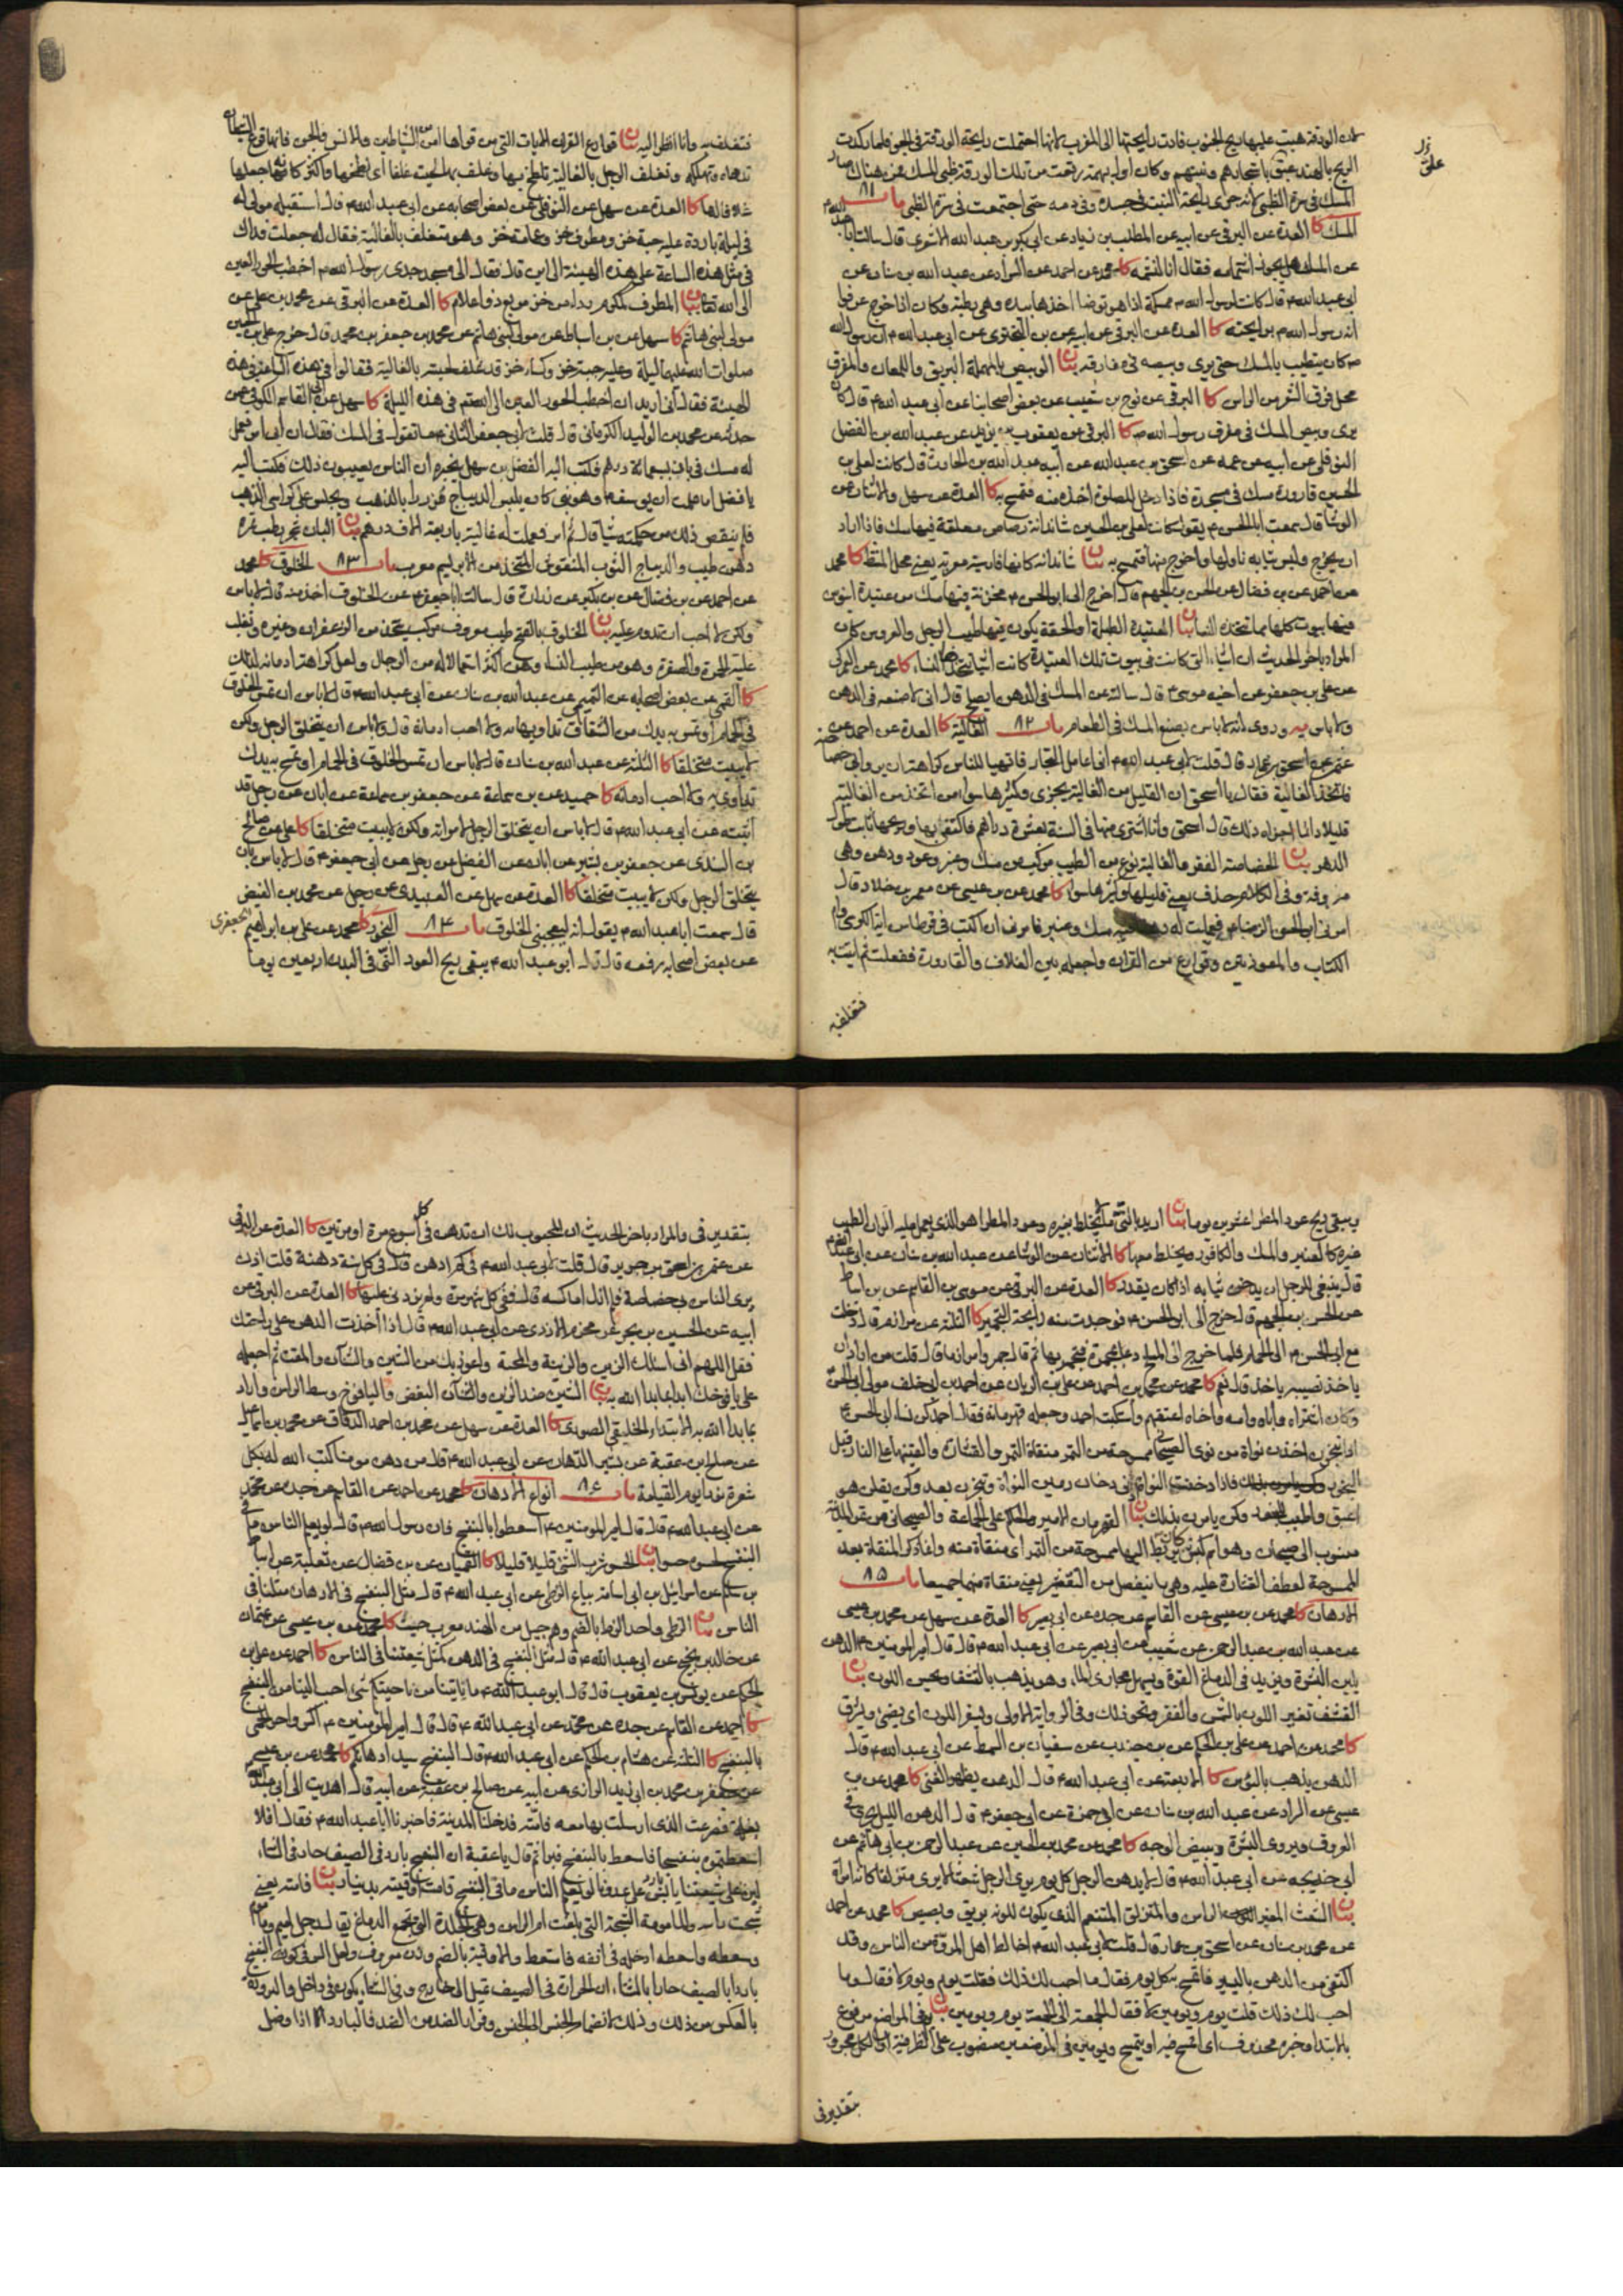 تلك الورقة هبت عليها ريح الجنوب فادت رايحتها الى المغرب لانها احتملت رايحة الورقة في الجو فلما ركدت
الريح بالهند عبق باشجارهم ونبتهم وكان اول بهيمة رتعت من تلك الورقة ظبي المسك فمن هناك صار
المسك في سرة الظبي لانه جرى رايحة النبت في جسده وفي دمه حتى اجتمعت في سرة الظبي باب ٨١
المسك كا العدة عن البرقي عن ابيه عن المطلب بن زياد عن ابي بكر بن عبد الله الاشعري قال سالت ابا عبد الله ع
عن المسك هل يجوز اشتمامه فقال انا لنشمه كا محمد عن احمد عن السراد عن عبد الله بن سنان عن
ابي عبد الله ع قال كانت لرسول الله ص ممسكة اذا هو توضا اخذها بيده وهي رطبة فكان اذا خرج عرفوا
انه رسول الله ص برايحته كا العدة عن البرقي عن ابيه عن بن البختري عن ابي عبد الله ع ان رسول الله
ص كان يتطيب بالمسك حتى يرى وبيصه في مفارقه بيان الوبيص بالمهملة البريق واللمعان والمفرق
محل فرق الشعر من الراس كا البرقي عن نوح بن شعيب عن بعض اصحابنا عن ابي عبد الله ع قال كان
يرى وبيص المسك في مفرق رسول الله ص كا البرقي عن يعقوب بن يزيد عن عبد الله بن الفضل
النوفلي عن ابيه عن عمه عن اسحق بن عبد الله عن ابيه عبد الله بن الحارث قال كانت لعلي بن
الحسين قارورة مسك في مسجده فاذا دخل للصلوة اخذ منه فتمسح به كا العدة عن سهل والاثنان عن
الوشا قال سمعت ابا الحسن ع يقول كانت لعلي بن الحسين شاندانة رصاص معلقة فيها مسك فاذا اراد
ان يخرج ولبس ثيابه ناولها واخرج منها فتمسح به بيان شاندانة كانها فارسية معربة يعني محل المشط كا محمد
عن احمد عن بن فضال عن الحسن بن الجهم قال اخرج الى ابو الحسن ع مخزنة فيها مسك من عتيدة ابنوس
فيها بيوت كلها مما تتخذه النسا بيان العتيدة الطبلة او الحقة يكون فيها طيب الرجل والعروس كان
المراد باخر الحديث ان اشياء التي كانت في بيوت تلك العتيدة كانت اشيا تتخذها النساء كا محمد عن العمركي
عن علي بن جعفر عن اخيه موسى ع قال سالته عن المسك في الدهن ايصلح قال اني لاصنعه في الدهن
ولا باس يه وروي انه لا باس بصنع المسك في الطعام باب ٨٢ الغالية كا العدة عن احمد عن
عثمن عن اسحق بن عمار قال قلت لابي عبد الله ع اني اعامل التجار فاتهيا للناس كراهة ان يروا بي خصاصة
فاتخذ الغالية فقال يا اسحق ان القليل من الغالية يجزي وكثرها سوا من اتخذ من الغالية
قليلا دائما اجزاه ذلك قال اسحق وانا اشتري منها في السنة بعشرة دراهم فاكتفي بها وريحها ثابت طول
الدهر بيان الخصاصة الفقر والغالية نوع من الطيب مركب من مسك وعنبر وعود ودهن وهي
معروفة وفي الكلام حذف يعني قليلها وكثرها سوا كا محمد عن بن عيسى عن معمر بن خلاد قال
امرني ابو الحسن الرضا ع فعملت له دهنا فيه مسك وعنبر فامرني ان اكتب في قرطاس اية الكرسي وام
الكتاب والمعوذتين وقوارع من القران واجعله بين الغلاف والقارورة ففعلت ثم اتيته
فتغلف به
فتغلف به وانا انظر اليه بيان قوارع القران الايات التي من قراها امن من الشياطين والانس والجن فانها تقرع الشيطان
تدهاه وتهلكه وتغلف الرجل بالغالية تلطخ بها وغلف بها لحيته غلفا اي لطخها واكثر كانه شبهها جعلها
غلافا لها كا العدة عن سهل عن النوفلي عن بعض اصحابه عن ابي عبد الله ع قال استقبله مولى له
في ليلة باردة عليه جبة خز ومطرف خز وعمامة خز وهو متغلف بالغالية فقال له جعلت فداك
في مثل هذه الساعة على هذه الهيئة الى اين قال فقال الى مسجد جدي رسول الله ص اخطب الحور العين
الى الله تعالى بيان المطرف كمكرم رداء من خز مربع ذو اعلام كا العدة عن البرقي عن محمد بن علي عن
مولى لبني هاشم كا سهل عن بن اسباط عن مولى لبني هاشم عن محمد بن جعفر بن محمد قال خرج علي بن الحسين
صلوات الله عليهما ليلة وعليه جبة خز وكساء خز قد غلف لحيته بالغالية فقالوا في هذه الساعة في هذه
الهيئة فقال اني اريد ان اخطب الحور العين الى الله تعالى في هذه الليلة كا سهل عن ابي القاسم الكوفي عن
حدثه عن محمد بن الوليد الكرماني قال قلت لابي جعفر الثاني ع ما تقول في المسك فقال ان ابي امر فعمل
له مسك في بان بسبعمائة درهم فكتب اليه الفضل بن سهل يخبره ان الناس يعيبون ذلك فكتب اليه
يا فضل اما علمت ان يوسف ع وهو نبي كان يلبس الديباج مزررا بالذهب ويجلس على كراسي الذهب
فلم ينقص ذلك من حكمته شيا قال ثم امر فعملت له غالية باربعة الاف درهم بيان البان شجر يطيب ثمره
دهن طيب والديباج الثوب المنقوش المتخذ من الابريسم معرب باب ٨٣ الخلوق كا محمد
عن احمد عن بن فضال عن بن بكير عن زرارة قال سالت ابا جعفر ع عن الخلوق اخذ منه قال لا باس
ولكن لا احب ان تدوم عليه بيان الخلوق بالفتح طيب معروف مركب يتخذ من الزعفران وغيره وتغلب
عليه الحمرة والصفرة وهو من طيب النساء وهن اكثر استعمالا له من الرجال ولعل كراهة ادمانه لذلك
كا القمي عن بعض اصحابه عن التيمي عن عبد الله بن سنان عن ابي عبد الله ع قال لا باس ان تمس الخلوق
في الحمام او تمس به يدك من الشقاق تداويها به ولا احب ادمانه قال ولا باس ان يتخلق الرجل ولكن
لا يبيت متخلقا كا الثلثة عن عبد الله بن سنان قال لا باس ان تمس الخلوق في الحمام او تمسح به يدك
تداوي به ولا احب ادمانه كا حميد عن بن سماعة عن جعفر بن سماعة عن ابان عن رجل قد
اثبته عن ابي عبد الله ع قال لا باس ان يتخلق الرجل لامراته ولكن لا يبيت متخلقا كا علي عن صالح
بن السندي عن جعفر بن بشير عن ابان عن الفضيل عن رجل عن ابي جعفر ع قال لا باس بان
يتخلق الرجل ولكن لا يبيت متخلقا كا العدة عن سهل عن العبيدي عن رجل عن محمد بن الفيض
قال سمعت ابا عبد الله ع يقول انه ليعجبني الخلوق باب ٨٤ البخور كا محمد عن علي بن ابراهيم الجعفري
عن بعض اصحابه رفعه قال قال ابو عبد الله ع يبقى ريح العود التي في البدن اربعين يوما
ويبقى ريح عود المطرا عشرين يوما بيان اريد بالتي ما لم يختلط بغيره وعود المطرا هو الذي يعمل عليه الوان الطيب
غيره كالعنبر والمسك والكافور ويخلط معها كا الاثنان عن الوشا عن عبد الله بن سنان عن ابي عبد الله ع
قال ينبغي للرجل ان يدخن ثيابه اذا كان يقدر كا العدة عن البرقي عن موسى بن القاسم عن بن اسباط
عن الحسن بن الجهم قال خرج الى ابو الحسن ع فوجدت منه رايحة التجمير كا الثلثة عن مرازم قال دخلت
مع ابي الحسن ع الى الحمام فلما خرج الى المسلخ دعا بمجمرة فتجمر بها ثم قال جمروا مرازما قال قلت من اراد ان
ياخذ نصيبه ياخذ قال نعم كا محمد عن محمد بن احمد عن علي بن الريان عن احمد بن ابي خلف مولى ابي الحسن ع
وكان اشتراه واباه وامه واخاه اعتقهم واستكتب احمد وجعله قهرمانه فقال احمد كن نساء ابي الحسن ع
اذا تبخرن اخذن نواة من نوى الصيحاني ممسوحة من التمر منقاة التمر والقشارة والقينها على النار قبل
البخور فاذا دخنت النواة ادنى دخان رمين النواة وتبخرن بعد وكن يقلن هو
اعبق واطيب للبخور وكن يامرن بذلك بيان القهرمان الامير والحاكم على الجماعة والصيحاني من تمر المدينة
منسوب الى صيحان وهو اسم كبش كان ربط اليها ممسوحة من التمر اي منقاة منه واعاد ذكر المنقاة بعد
الممسوحة لعطف القشارة عليه وهي ما ينفصل من التقشير يعني منقاة منهما جميعا باب ٨٥
الادهان كا محمد عن بن عيسى عن القاسم عن جده عن ابي بصير كا العدة عن سهل عن محمد بن عيسى
عن عبد الله بن عبد الرحمن عن شعيب عن ابي بصير عن ابي عبد الله ع قال قال امير المومنين ع الدهن
يلين البشرة ويزيد في الدماغ القوة ويسهل مجاري الماء وهو يذهب بالقشف ويحسن اللون بيان
القشف تغير اللون بالشمس والفقر ونحو ذلك وفي الرواية الاولى ويسفر اللون اي يضئ ويشرق
كا محمد عن احمد عن علي بن الحكم عن بن جندب عن سفيان بن السمط عن ابي عبد الله ع قال
الدهن يذهب بالبؤس كا الاربعة عن ابي عبد الله ع قال الدهن يظهر الغنى كا محمد عن بن
عيسى عن السراد عن عبد الله بن سنان عن ابي حمزة عن ابي جعفر ع قال الدهن الليل يجري في
العروق ويروي البشرة ويبيض الوجه كا محمد عن محمد بن الحسين عن عبد الرحمن بن ابي هاشم عن
ابي خديجة عن ابي عبد الله ع قال لا يدهن الرجل كل يوم يرى الرجل شعثا لا يرى متزلقا كانه امراة
بيان الشعث المغبر الراس والمتزلق المتنعم الذي يكون للونه بريق وبصيص كا محمد عن احمد
عن محمد بن سنان عن اسحق بن عمار قال قلت لابي عبد الله ع اخالط اهل المروة من الناس وقد
اكتفي من الدهن باليسير فاتمسح به كل يوم فقال ما احب لك ذلك فقلت يوم ويوم لا فقال وما
احب لك ذلك قلت يوم ويومين لا فقال الجمعة الى الجمعة يوم ويومين بيان يوم في المواضع مرفوع
بالابتدا وخبره محذوف اي اتمسح فيه او يتمسح ويومين في الموضعين منصوب على الظرفية او الكل مجرور
بتقدير في
بتقدير في والمراد باخر الحديث ان المحبوب لك ان تدهن في كل اسبوع مرة او مرتين كا العدة عن البرقي
عن عثمن عن اسحق بن جرير قال قلت لابي عبد الله ع في كم ادهن قال في كل سنة دهنة قلت اذن
يرى الناس بي خصاصة فلم ازل اماكسه قال ففي كل شهر مرة ولم يزدني عليها كا العدة عن البرقي عن
ابيه عن الحسين بن بحر عن مهزم الاسدي عن ابي عبد الله ع قال اذا اخذت الدهن على راحتك
فقل اللهم اني اسئلك الزين والزينة والمحبة واعوذ بك من الشين والشنان والمقت ثم اجعله
على يافوخك ابدا بما بدا الله به بيان الشين ضد الزين والشنان البغض واليافوخ وسط الراس واراد
بما بدا الله به الابتداء الخليقي الصوري كا العدة عن سهل عن محمد بن احمد الدقاق عن محمد بن اسماعيل
عن صالح بن عقبة عن بشير الدهان عن ابي عبد الله ع قال من دهن مومنا كتب الله له بكل
شعرة نورا يوم القيامة باب ٨٦ انواع الادهان كا محمد عن احمد عن القاسم عن جده عن محمد
عن ابي عبد الله ع قال قال امير المومنين ع استعطوا بالبنفسج فان رسول الله ص قال لو يعلم الناس ما في
البنفسج لحسوه حسوا بيان الحسو شرب الشئ قليلا قليلا كا القميان عن بن فضال عن ثعلبة عن اسباط
بن سالم عن اسرائيل بن ابي اسامة بياع الزطي عن ابي عبد الله ع قال مثل البنفسج في الادهان مثلنا في
الناس بيان الزطي واحد الزط بالضم وهم جيل من الهند معرب جت كا محمد عن بن عيسى عن عثمان
عن خالد بن نجيح عن ابي عبد الله ع قال مثل البنفسج في الدهن كمثل شيعتنا في الناس كا احمد عن علي بن
الحكم عن يونس بن يعقوب قال قال ابو عبد الله ع ما ياتينا من ناحيتكم شئ احب الينا من البنفسج
كا احمد عن القاسم عن جده عن محمد عن ابي عبد الله ع قال قال امير المومنين ع اكسروا حر الحمى
بالبنفسج كا الثلثة عن هشام بن الحكم عن ابي عبد الله ع قال البنفسج سيد ادهانكم كا محمد عن بن عيسى
عن جعفر بن محمد بن ابي زيد الرازي عن ابيه عن صالح بن عقبة عن ابيه قال اهديت الى ابي عبد الله
بغلة فصرعت الذي ارسلت بها معه فامته فدخلنا المدينة فاخبرنا ابا عبد الله ع فقال افلا
اسعطتموه بنفسجا فاسعط بالبنفسج فبرا ثم قال يا عقبة ان البنفسج بارد في الصيف حار في الشتاء
لين على شيعتنا يابس على عدونا لو يعلم الناس ما في البنفسج قامت اوقيته بدينار بيان فامته يعني
شجت راسه والمامومة الشجة التي بلغت ام الراس وهي الجلدة التي تجمع الدماغ يقال رجل اميم وماموم
وسعطه واسعطه ادخله في انفه فاستعط والاوقية بالضم وزن معروف ولعل السر في كون البنفسج
باردا بالصيف حارا بالشتاء ان الحرارة في الصيف تميل الى خارج وفي الشتاء يكون في داخل والبرودة
بالعكس من ذلك وذلك لانضمام الجنس الى الجنس وفرار الضد من الضد فالبارد اذا وصل